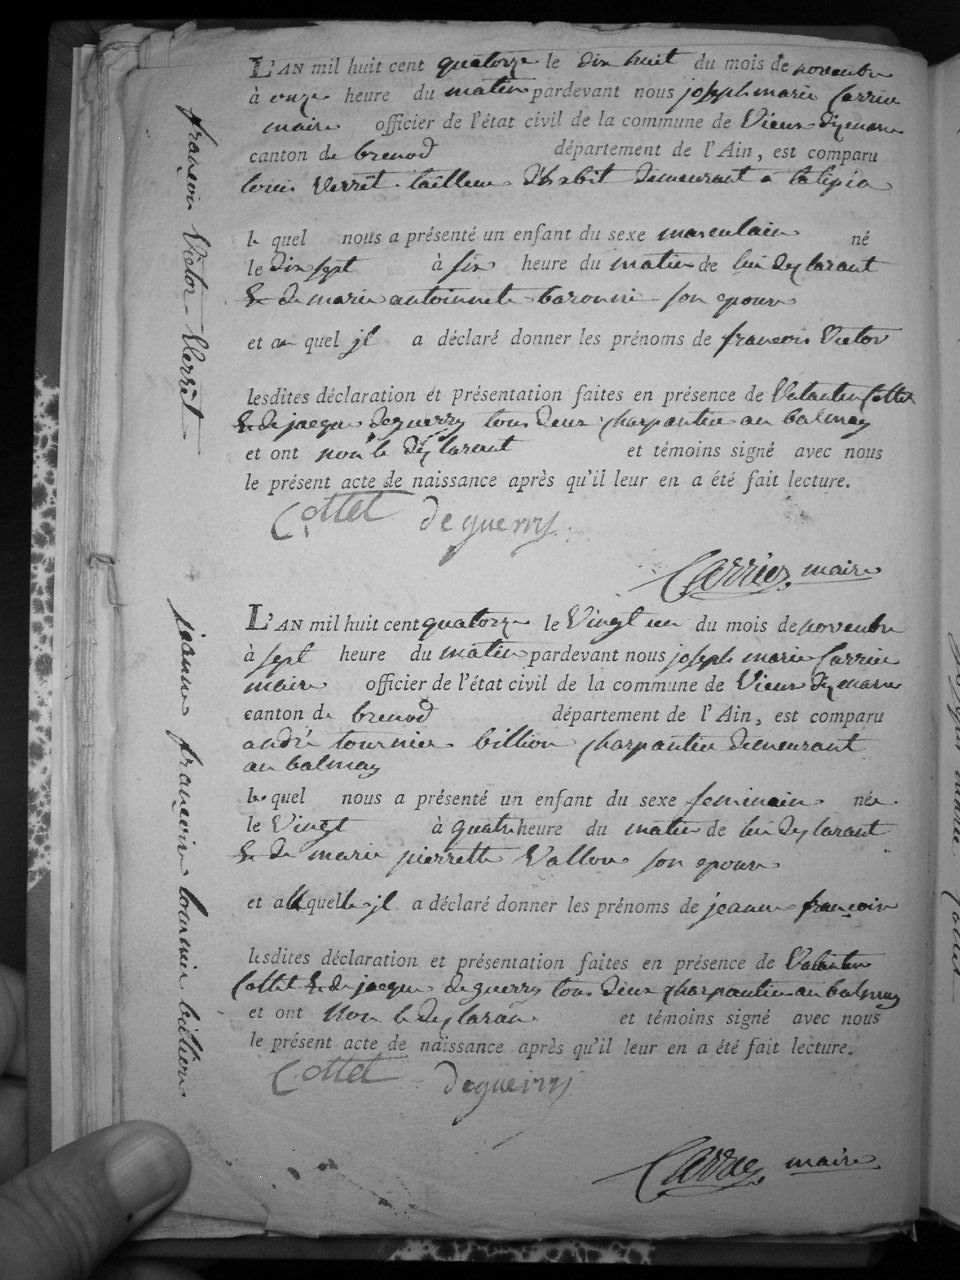 L'AN mil huit cent quatorze le dix huit du mois de novembre
à onze heure du matin pardevant nous joseph marie Carrier
maire officier de l'état civil de la commune de Vieux dizenave
canton de brenod département de l'Ain, est comparu
louis Verrêt tailleur d'habit demeurant a
le quel nous a présenté un enfant du sexe masculain né
le dix sept à six heure du matin de lui déylarant
& de marie antoinnete baronne son epouse
et au quel jl a déclaré donner les prénoms de françois Victor
lesdites déclaration et présentation faites en présence de Valantin Cottet
& de jacque deguerry tous deux charpantier au balmay
et ont non le déylarant et témoins signé avec nous
le présent acte de naissance après qu'il leur en a été fait lecture.
Cottet deguerry
Carrier maire
françois Victor Verrêt
L'AN mil huit cent quatorze le Vingt un du mois de novembre
à sept heure du matin pardevant nous joseph marie Carrier
maire officier de l'état civil de la commune de Vieux dizenave
canton de brenod département de l'Ain, est comparu
andré tournier billion charpantier demeurant
au balmay
le quel nous a présenté un enfant du sexe feminain née
le Vingt à quatre heure du matin de lui deylarant
& de marie pierrette Vallou son epouse
et a laquelle jl a déclaré donner les prénoms de jeanne françoise
lesdites déclaration et présentation faites en présence de Valantin
Cottet & de jacque deguerry tous deux charpantier au balmay
et ont Non le deylaran et témoins signé avec nous
le présent acte de naissance après qu'il leur en a été fait lecture.
Cottet deguerry
Carrier maire
jeanne françoise tournier billion